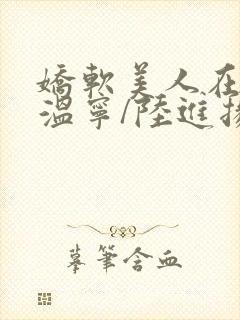 嬌軟美人在
溫寧/陸進揚
摹筆含血